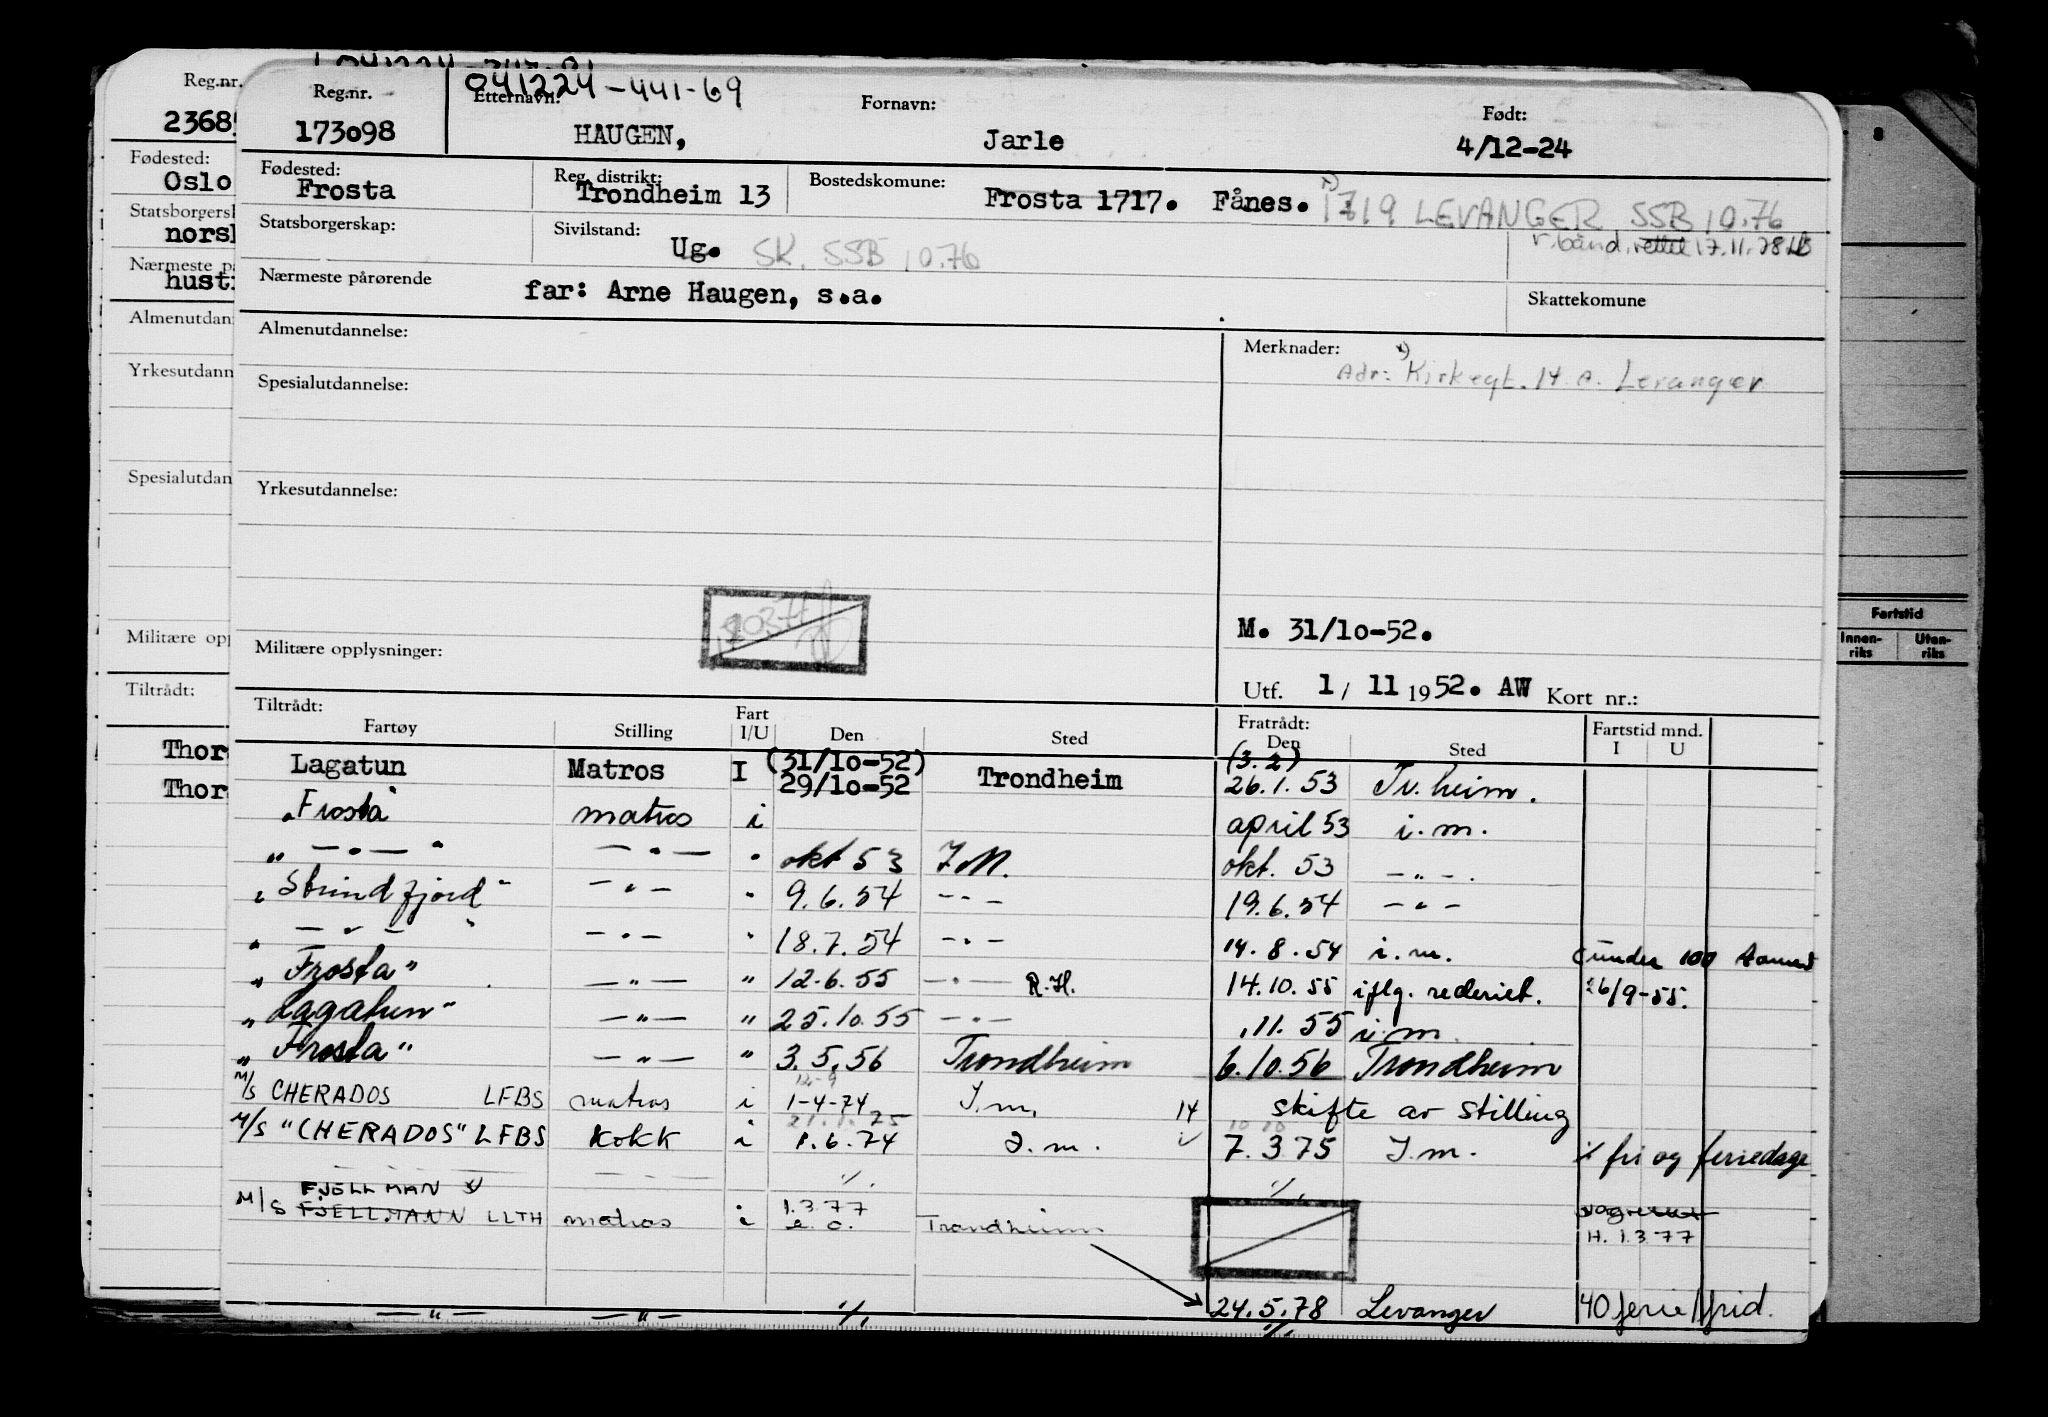 Reg.nr.
2368
Fødested:
Oslo
norsk
Nærmeste på
hust
Almenutdan
Yrkesutdann
Spesialutdan
Militære opp
Tiltrådt:
Thor
Thor
041224-441-69
Reg.nr. Etternavn: Fornavn: Født:
173098 HAUGEN, Jarle 4/12-24
Fødested: Reg. distrikt: Bostedskomune:
Frosta Trondheim 13 Frosta 1717. Fånes. 1719 LEVANGER SSB 10.76
Statsborgerskap: Sivilstand: r.bånd. rettet 17.11.78
Ug. SK. SSB 10.76
Nærmeste pårørende far: Arne Haugen, s.a. Skattekomune
Almenutdannelse: Merknader:
Adr: Kirkegt. 14. A. Levanger
Spesialutdannelse:
Yrkesutdannelse:
M. 31/10-52.
Militære opplysninger:
Utf. 1 / 11 1952. AW Kort nr.:
Tiltrådt: Fratrådt:
Fartøy Stilling Fart I/U Den Sted Den Sted Fartstid mnd. I U
Lagatun Matros I (31/10-52) 29/10-52 Trondheim (3.2) 26.1.53 Tr.heim.
"Frosta" matros i april 53 i.m.
" — " — " — " — " okt 53 I.M. okt. 53 — " —
"Strindfjord" — " — " 9.6.54 — " — 19.6.54 — " —
" — " — " — " — " 18.7.54 — " — 14.8.54 i.m. under 100 tonn
"Frosta" — " — " 12.6.55 — " — R.H. 14.10.55 iflg. rederiet. 26/9-55.
"Lagatun" — " — " 25.10.55 — " — .11.55 i.m.
"Frosta" — " — " 3.5.56 Trondheim 6.10.56 Trondheim
M/S CHERADOS LFBS matros i 1-4-74 I.m. 14 skifte av stilling
21.1.75
M/S "CHERADOS" LFBS kokk i 1.6.74 I.m. 7.3 75 I.m. % fri og feriedage
FJELLMAN
M/S FJELLMANN LLTH matros i 1.3.77 e.o. Trondheim
H. 1.3.77
— " — — " — 24.5.78 Levanger 40 ferie/frid.
8
Fartstid
Innen-riks Uten-riks